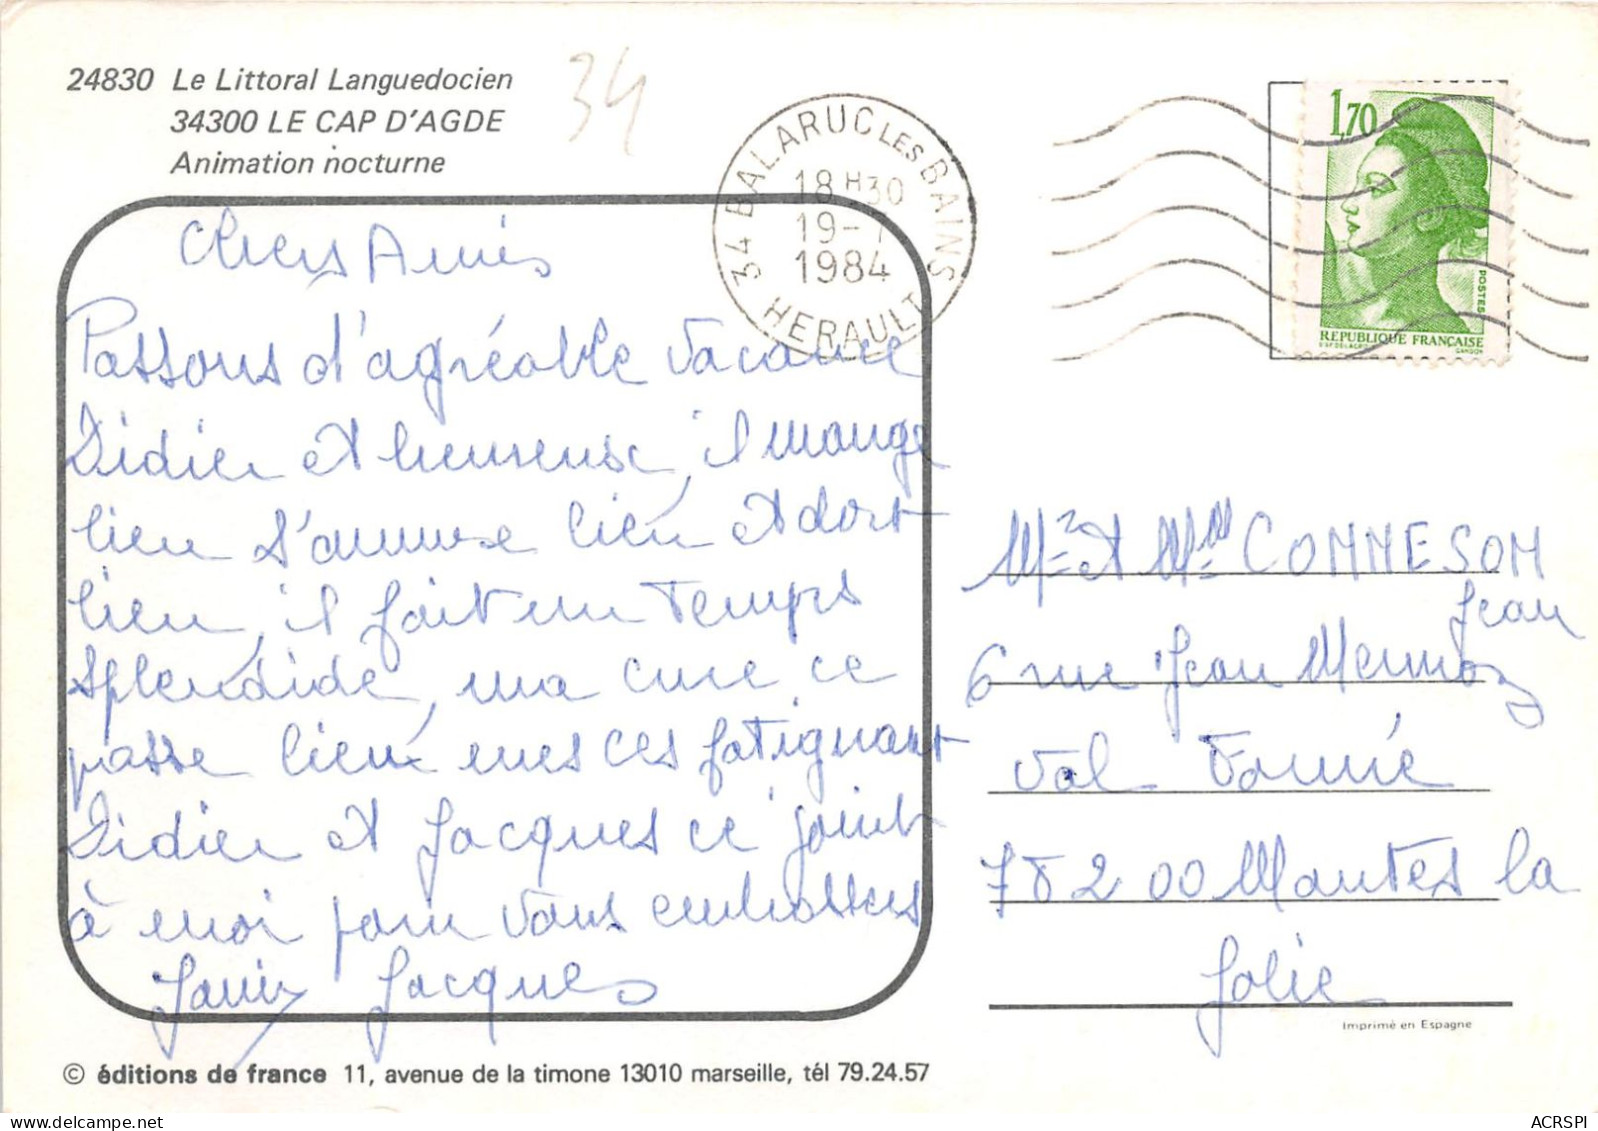 24830 Le Littoral Languedocien
34300 LE CAP D'AGDE
Animation nocturne
34
34 BALARUC LES BAINS
18 H30
19-7
1984
HERAULT
1,70
POSTES
REPUBLIQUE FRANÇAISE
GANDON
Chers Amis
Passons d'agréable vacance
Didier et heureuse, il mange
bien s'amuse bien et dort
bien, il fait un temps
splendide, ma cure ce
passe bien mes ces fatignant
Didier et Jacques ce joint
à moi pour vous embrasses
Jacques
Mr et Mme COMMESON
Jean
6 rue Jean Mermoz
Val Fourré
78200 Mantes la
Jolie
Imprimé en Espagne
© éditions de france 11, avenue de la timone 13010 marseille, tél 79.24.57
ACRSPI